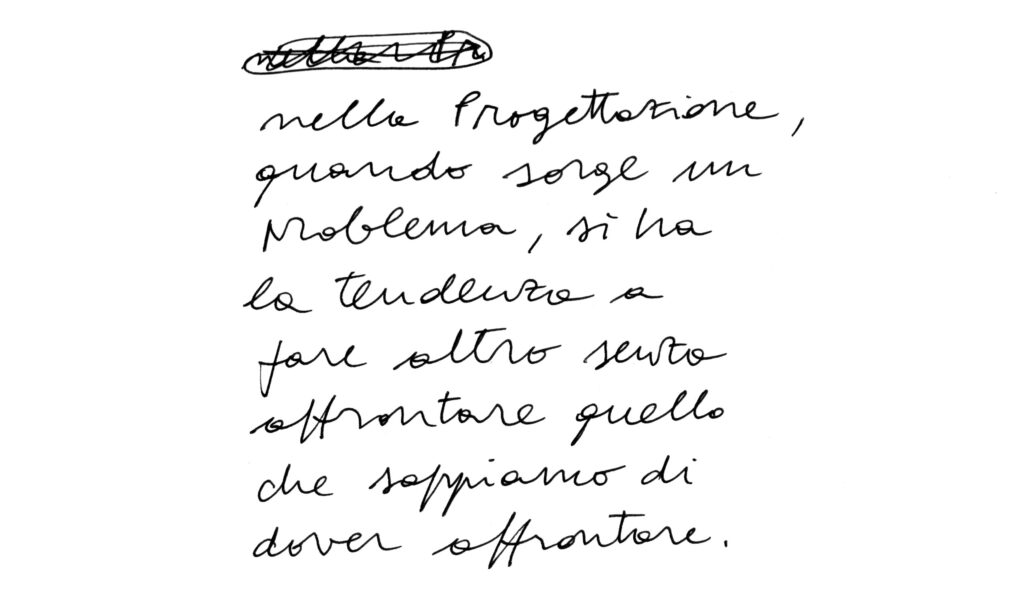 nella Progettazione,
quando sorge un
problema, si ha
la tendenza a
fare altro senza
affrontare quello
che sappiamo di
dover affrontare.